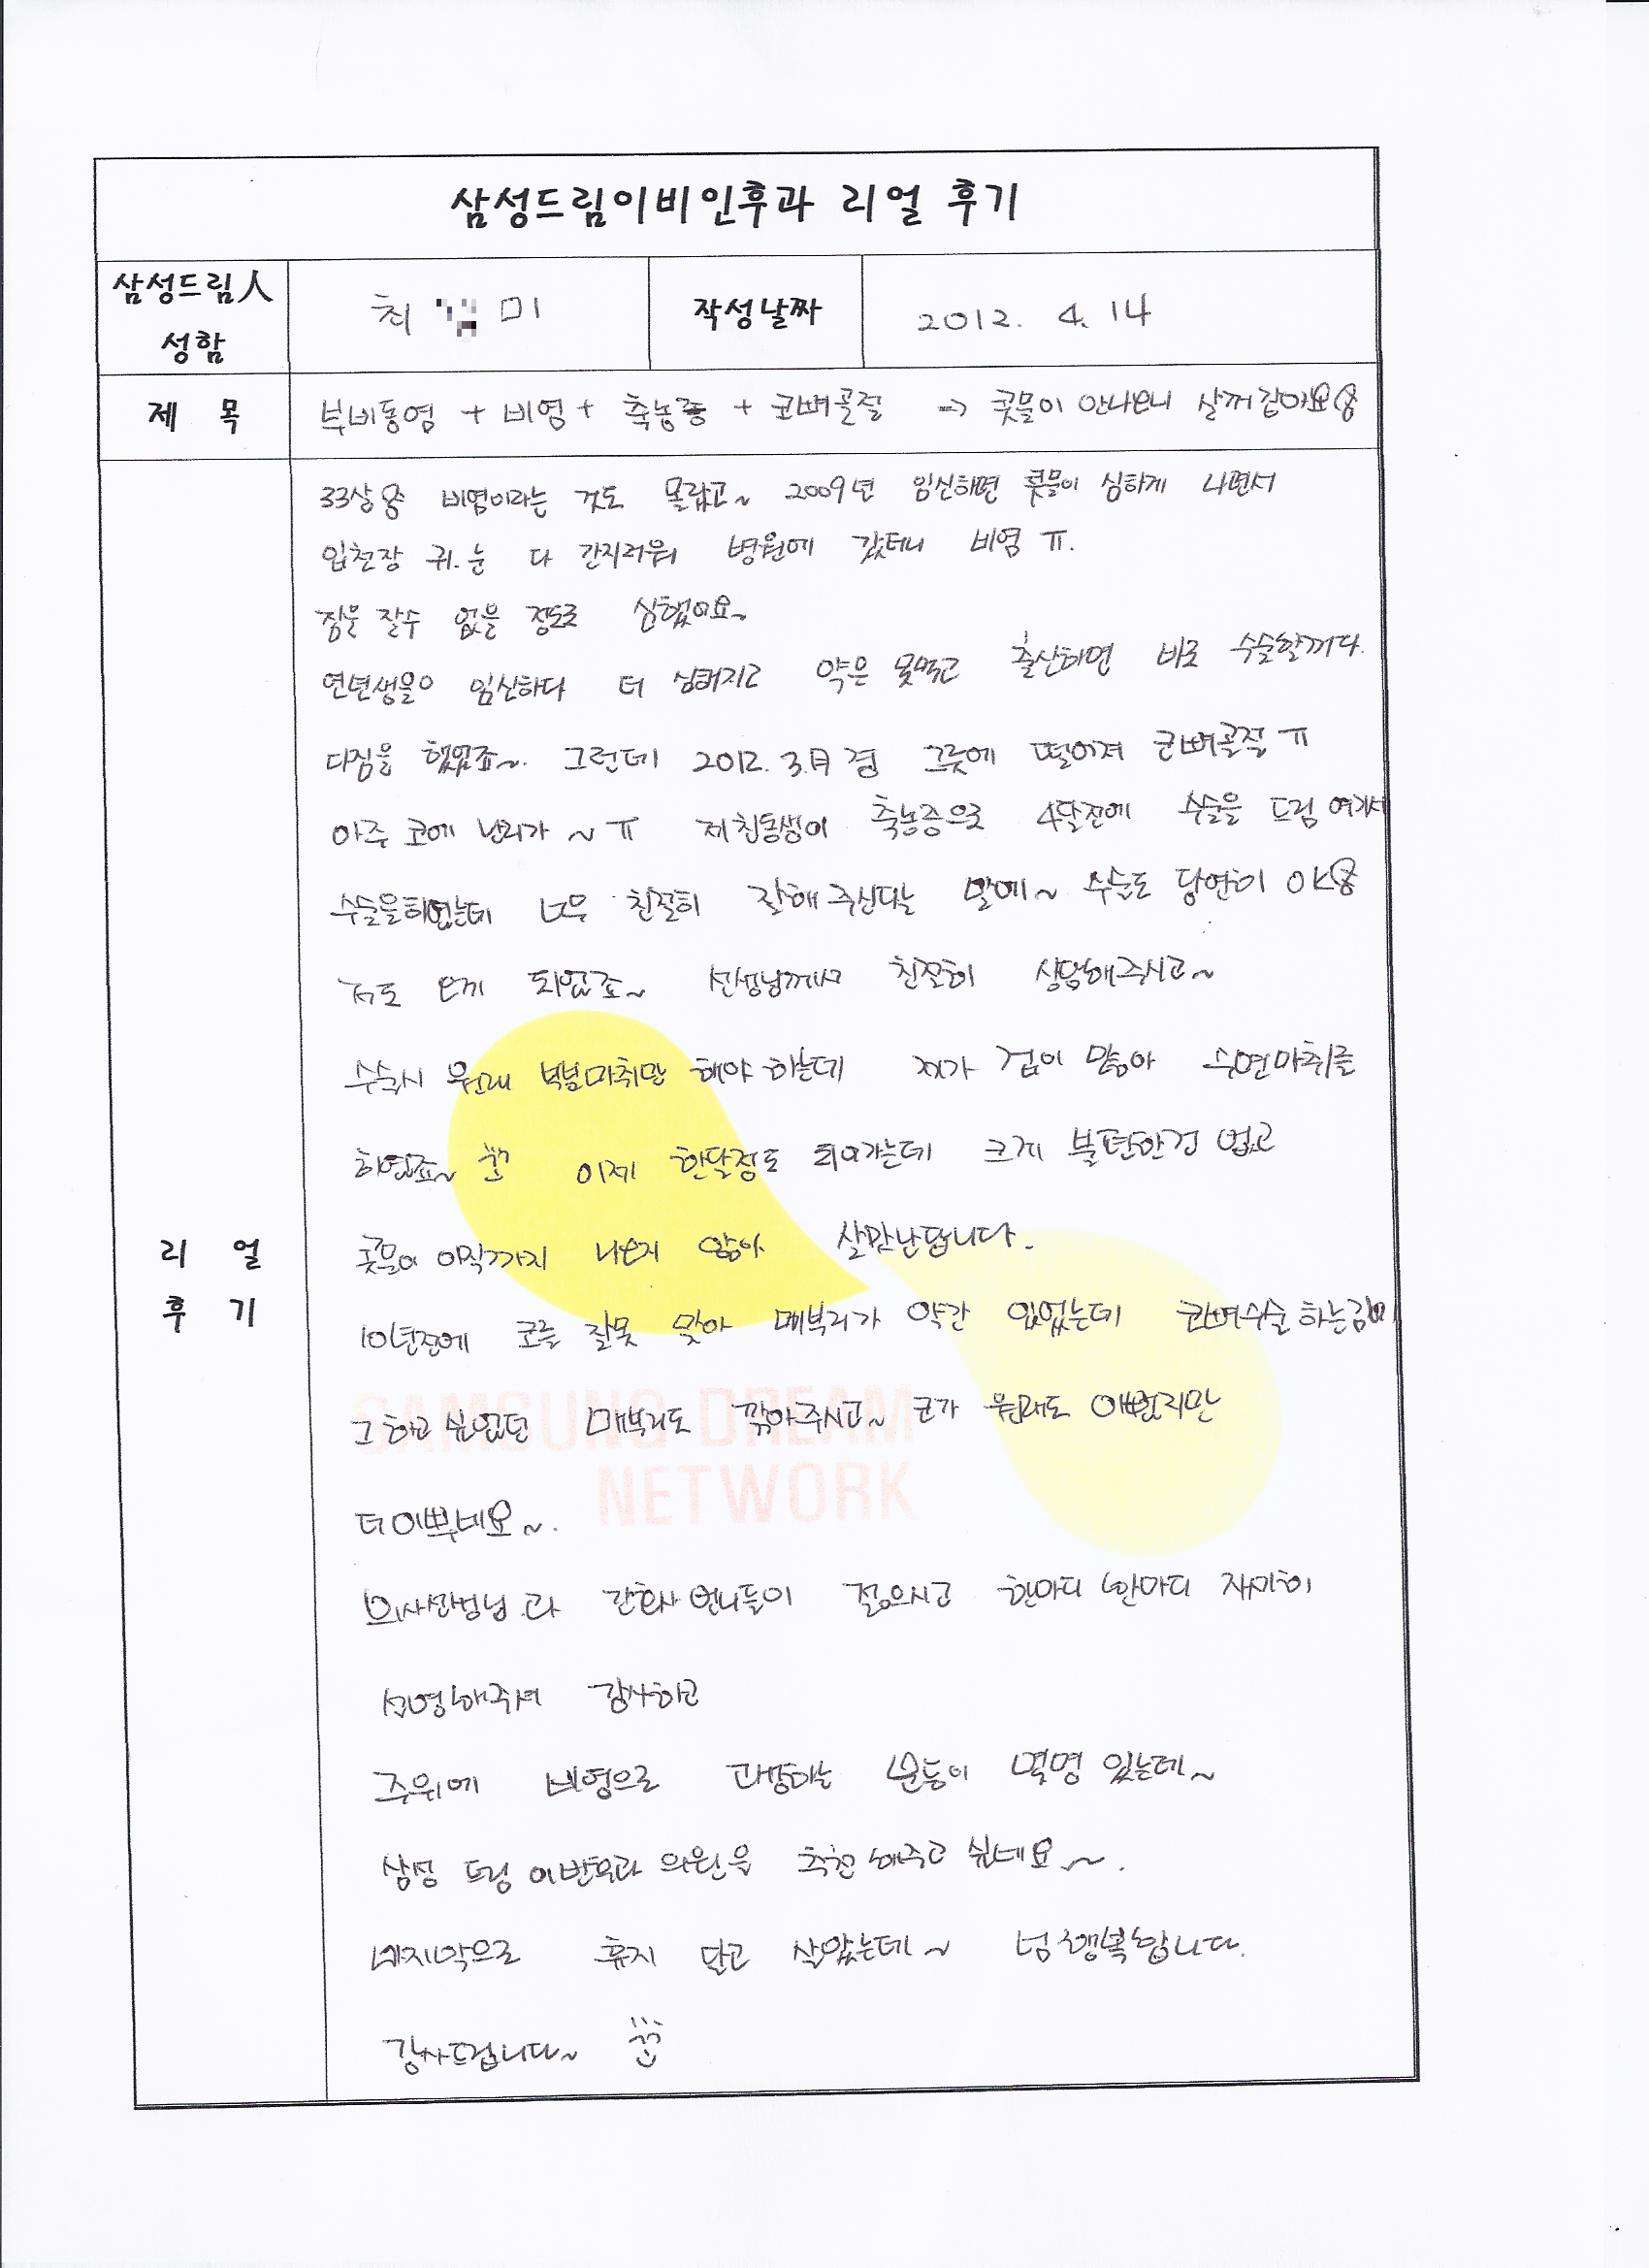 삼성드림이비인후과 리얼 후기
삼성드림人
성함
최 미
작성날짜
2012. 4. 14
제 목
부비동염 + 비염 + 축농증 + 코뼈골절 → 콧물이 안나오니 살꺼같아요용
33살용 비염이라는 것도 몰랐고~ 2009년 임신하면 콧물이 심하게 나면서
입천장 귀.눈 다 간지러워 병원에 갔더니 비염 ㅠ.
잠을 잘수 없을 정도로 심했어요~
연년생을 임신하다 더 심해지고 약은 못먹고 출산하면 바로 수술할꺼다.
다짐을 했었죠~. 그런데 2012. 3.月경 그릇에 떨어져 코뼈골절 ㅠ
아주 코에 난리가 ~ ㅠ 제친동생이 축농증으로 4달전에 수술을 드림 여기서
수술을하였는데 너무 친절히 잘해주신다는 말에~ 수술도 당연히 OK용
저도 오게 되었죠~ 선생님께서 친절히 상담해주시고~
수술시 원래 부분마취만 해야 하는데 제가 겁이 많아 수면마취를
하였죠~ 이제 한달정도 되어가는데 크게 불편한건 없고
콧물이 아직까지 나오지 않아 살만난답니다.
10년전에 코를 잘못 맞아 매부리가 약간 있었는데 코뼈수술 하는김에
그 하고 싶었던 매부리도 깎아주시고~ 코가 원래도 이뻤지만
더이뿌네요~.
의사선생님과 간호사 언니들이 젊으시고 한마디 한마디 자세히
설명해주셔 감사하고
주위에 비염으로 고생하는 분들이 몇명 있는데~
삼성 드림 이비인후과 의원을 추천해주고 싶네요~.
마지막으로 휴지 달고 살았는데~ 넘 행복합니다.
감사드립니다~
SAMSUNG DREAM
NETWORK
리 얼
후 기